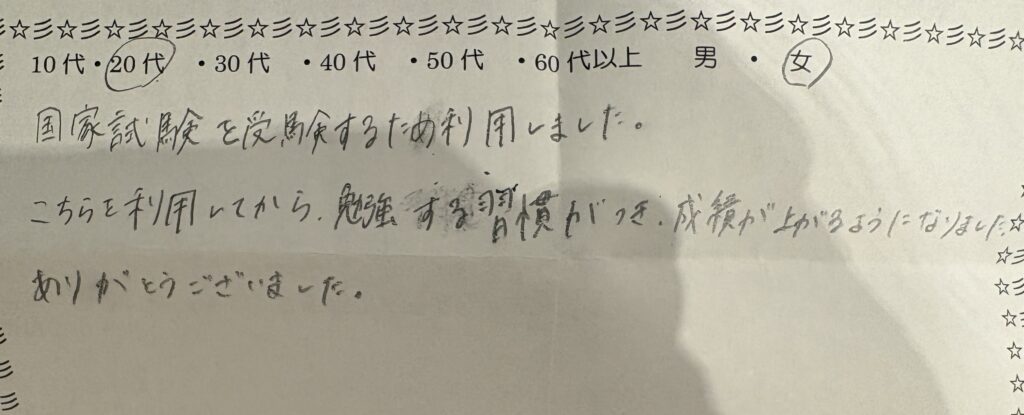 10代・20代 ・30代 ・40代 ・50代 ・60代以上 男 ・ 女
国家試験を受験するため利用しました。
こちらを利用してから、勉強する習慣がつき、成績が上がるようになりました
ありがとうございました。